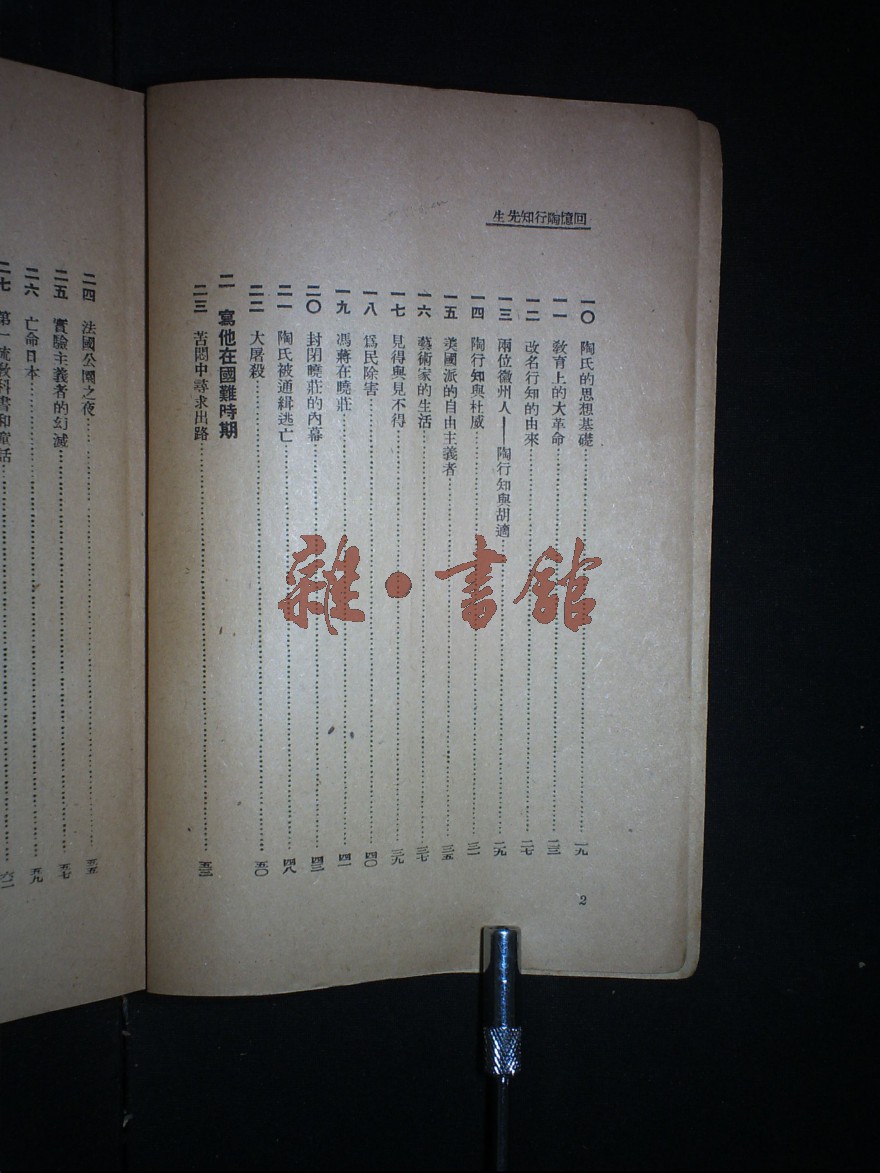 回憶陶行知先生
一〇 陶氏的思想基礎 一九
一一 教育上的大革命 二三
一二 改名行知的由來 二七
一三 兩位徽州人——陶行知與胡適 二九
一四 陶行知與杜威 三一
一五 美國派的自由主義者 三五
一六 藝術家的生活 三七
一七 見得與見不得 三九
一八 爲民除害 四〇
一九 馮蔣在曉莊 四一
二〇 封閉曉莊的內幕 四三
二一 陶氏被通緝逃亡 四八
二二 大屠殺 五〇
二 寫他在國難時期
二三 苦悶中尋求出路 五三
2
二四 法國公園之夜 五五
二五 實驗主義者的幻滅 五七
二六 亡命日本 五九
二七 第一流教科書和童話 六二
雜·書館